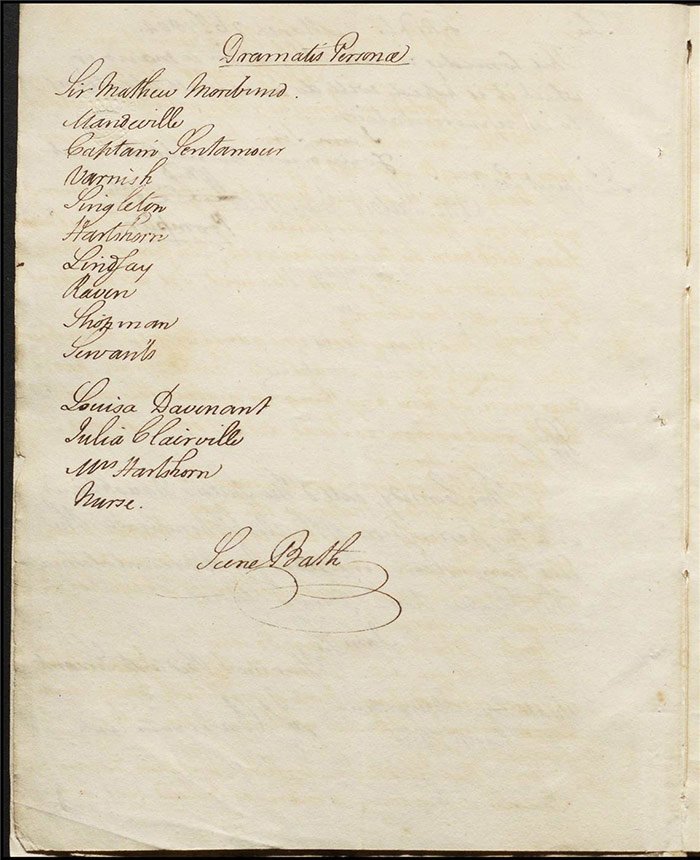 Dramatis Personæ
Sir Mathew Moribund.
Mandeville
Captain Sentamour
Varnish
Singleton
Hartshorn
Lindsay
Raven
Shopman
Servants
Louisa Davenant
Julia Clairville
Mrs Hartshorn
Nurse.
Scene Bath